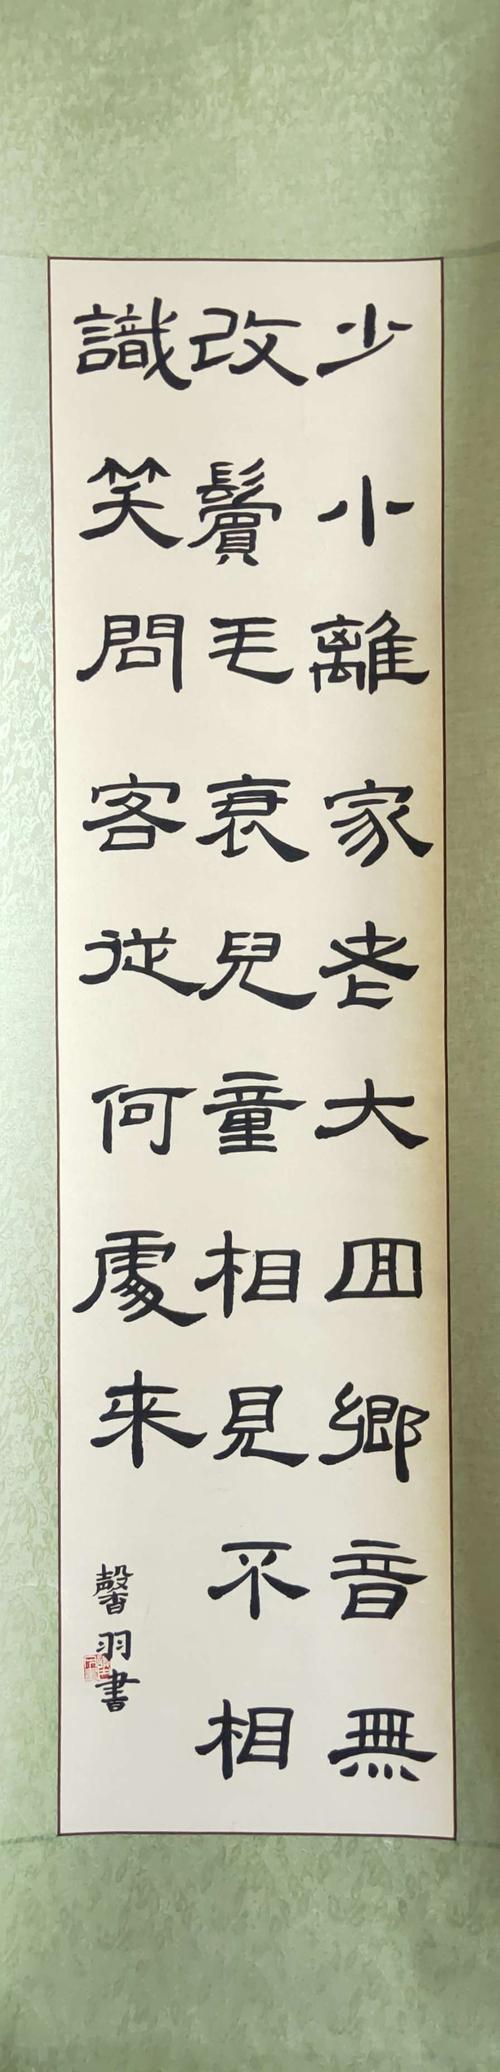 少小離家老大回鄉音無
改鬢毛衰兒童相見不相
識笑問客從何處来
馨羽書